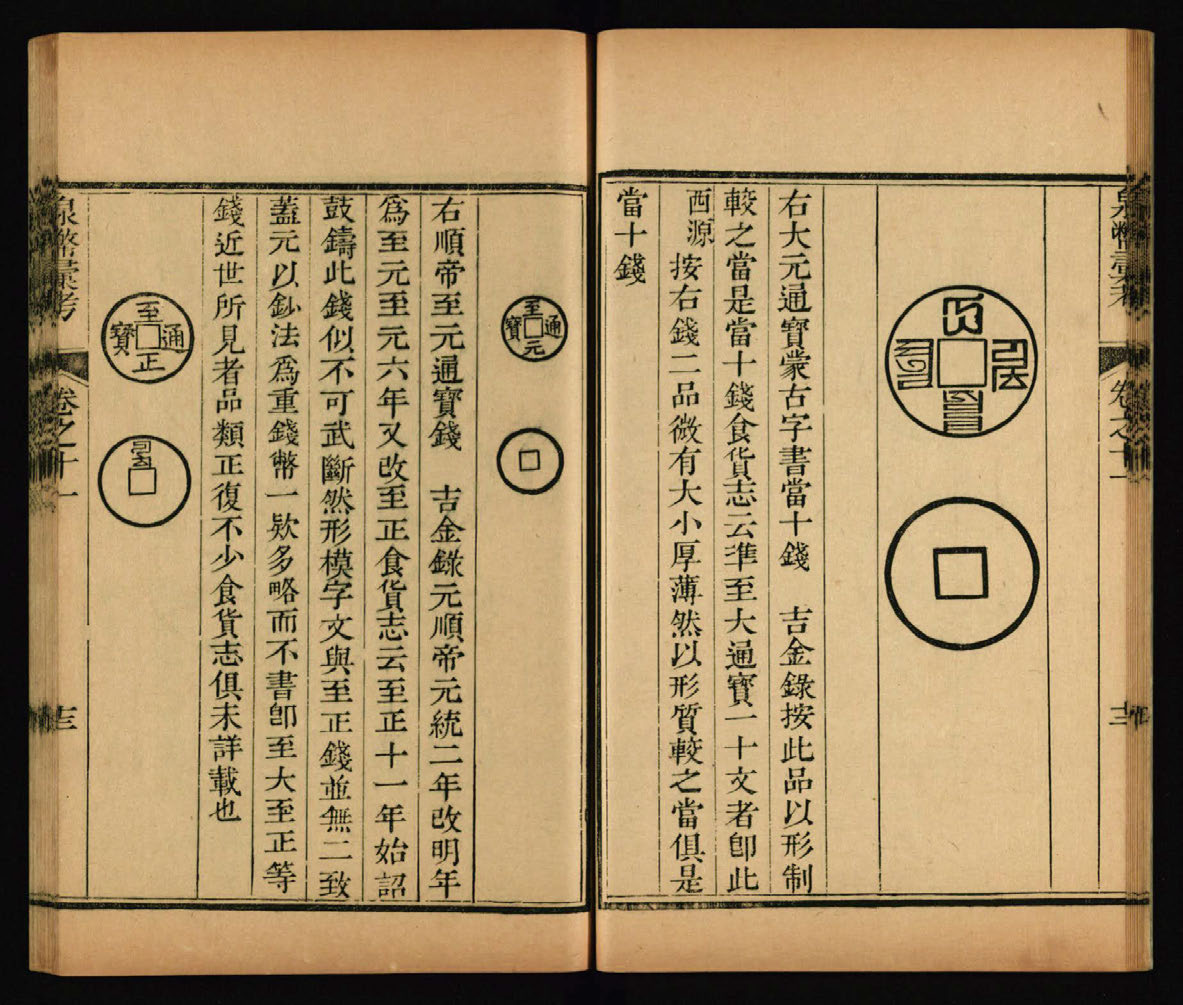 泉幣彙考
卷之十一
右大元通寶蒙古字書當十錢　吉金錄按此品以形制
較之當是當十錢食貨志云準至大通寶一十文者卽此
西源　按右錢二品微有大小厚薄然以形質較之當俱是
當十錢
至元通寶
右順帝至元通寶錢　吉金錄元順帝元統二年改明年
爲至元至元六年又改至正食貨志云至正十一年始詔
鼓鑄此錢似不可武斷然形模字文與至正錢並無二致
蓋元以鈔法爲重錢幣一欵多略而不書卽至大至正等
錢近世所見者品類正復不少食貨志俱未詳載也
至正通寶
泉幣彙考
卷之十一